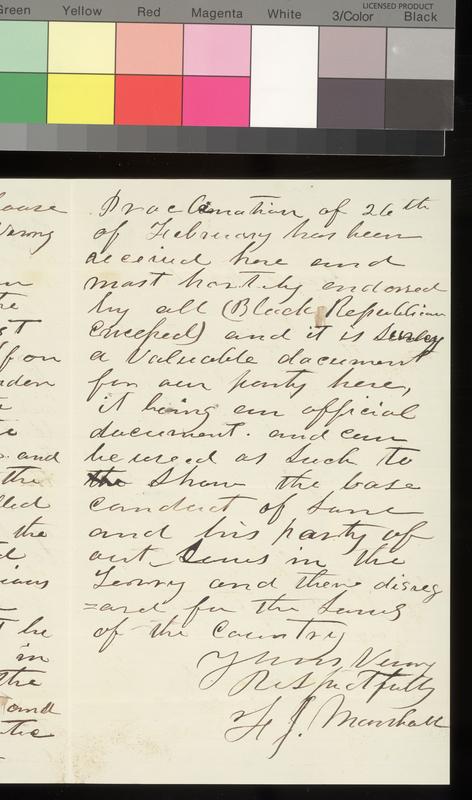 LICENSED PRODUCT
Green Yellow Red Magenta White 3/Color Black
Proclimation of 26th
of February has been
receiued here and
most hartily endorsed
by all (Black Republican
Excepted) and it is surely
a valuable document
for our party here,
it being an official
document. and can
be used as such to
the show the base
conduct of Lane
and his party of
out Laws in the
Terrry and there disreg
=ard for the Laws
of the Country
Yours Verry
Respectfully
F J. Marshall
loose
Verry
the
and
the
the
be
in
the
and
the